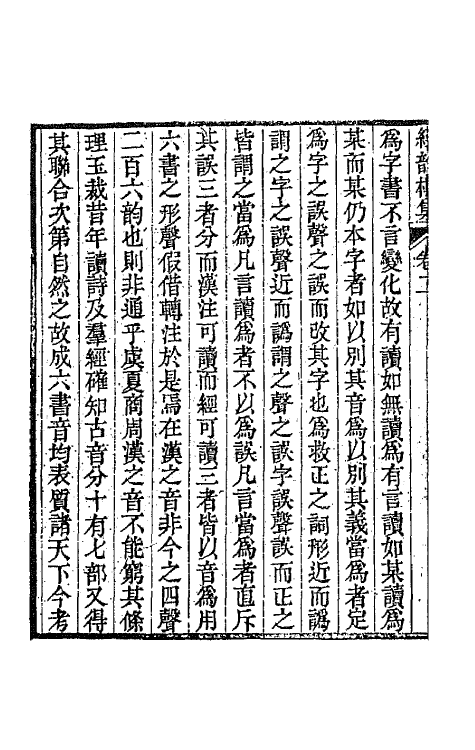 經韵樓集 卷二
爲字書不言變化故有讀如無讀爲有言讀如某讀爲
某而某仍本字者如以別其音爲以別其義當爲者定
爲字之誤聲之誤而改其字也爲救正之詞形近而譌
謂之字之誤聲近而譌謂之聲之誤字誤聲誤而正之
皆謂之當爲凡言讀爲者不以爲誤凡言當爲者直斥
其誤三者分而漢注可讀而經可讀三者皆以音爲用
六書之形聲假借轉注於是焉在漢之音非今之四聲
二百六韵也則非通乎虞夏商周漢之音不能窮其條
理玉裁昔年讀詩及羣經確知古音分十有七部又得
其聯合次第自然之故成六書音均表質諸天下今考